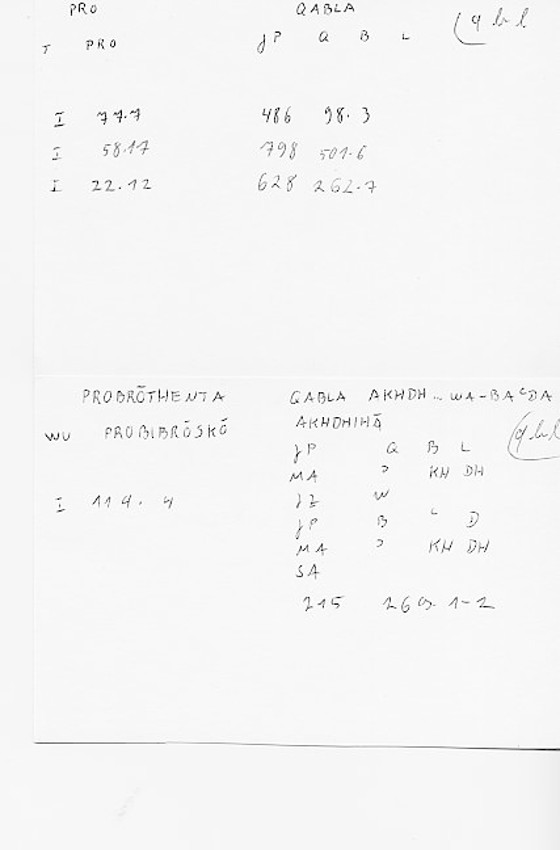 PRO QABLA
T PRO JP Q B L (qbl
I 77.7 486 98.3
I 58.17 798 501.6
I 22.12 628 262.7
PROBRŌTHENTA QABLA AKHDH... WA-BAʿDA
AKHDHIHĀ
WU PROBIBRŌSKŌ (qbl
JP Q B L
MA ʾ KH DH
JZ W
I 114. 4 JP B ʿ D
MA ʾ KH DH
SA
215 260. 1-2